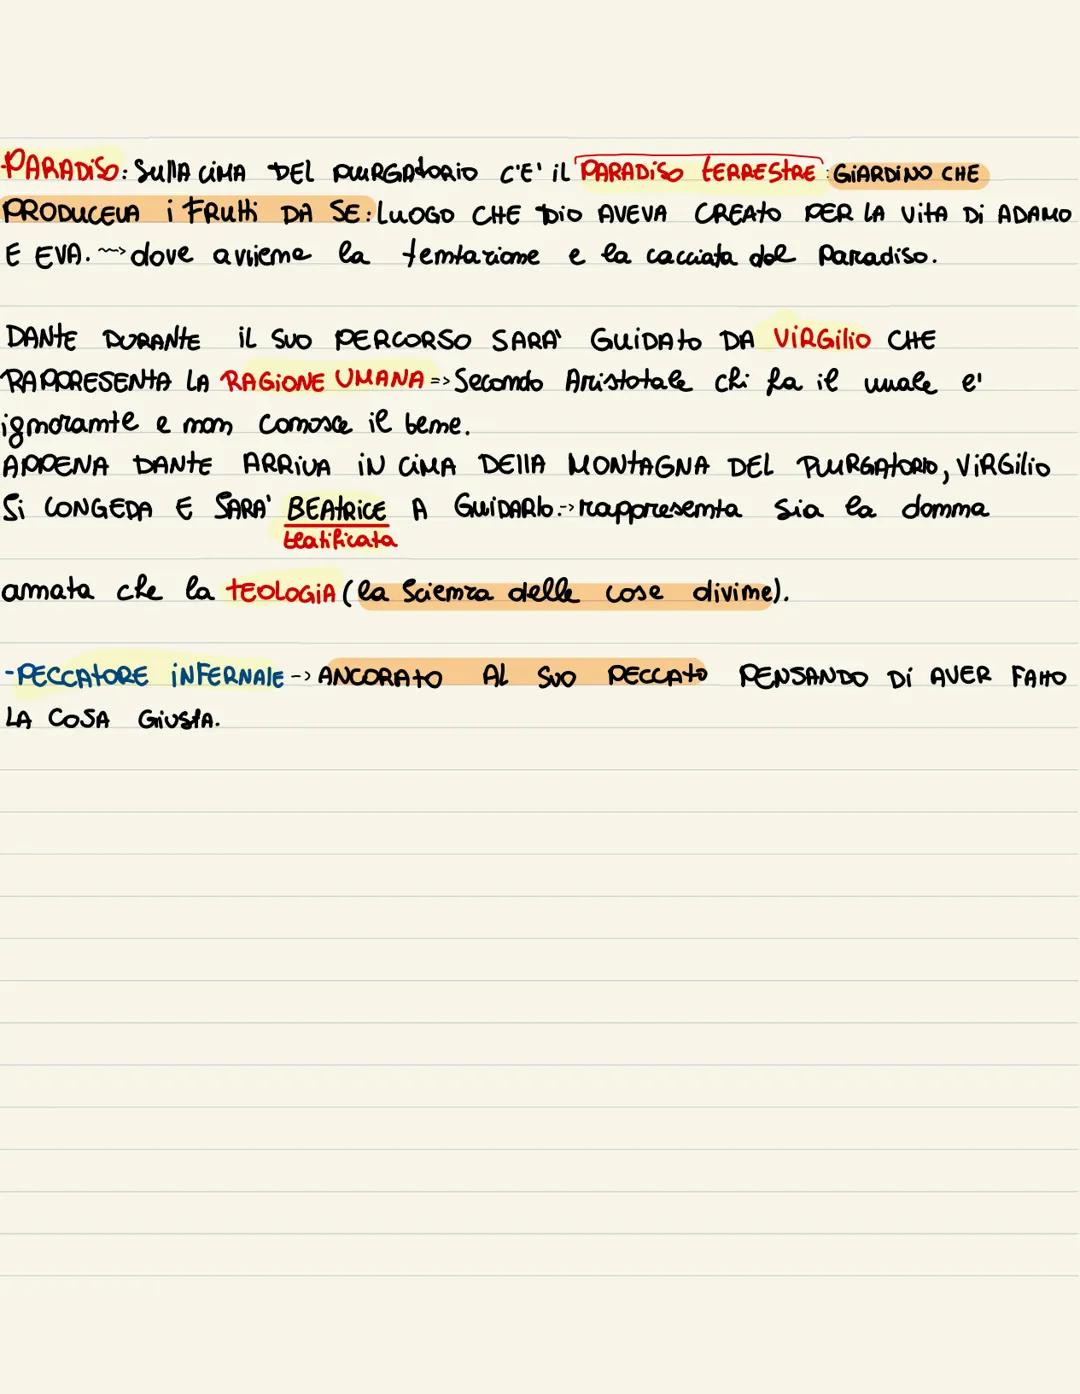 -PARADISO: SULLA CIMA DEL PURGATORIO C'E' IL PARADISO TERRESTRE: GIARDINO CHE
PRODUCEVA I FRUTTI DA SE: LUOGO CHE DIO AVEVA CREATO PER LA VITA DI ADAMO
E EVA. ~> dove avviene la tentazione e la cacciata dal Paradiso.
DANTE DURANTE IL SUO PERCORSO SARA' GUIDATO DA VIRGILIO CHE
RAPPRESENTA LA RAGIONE UMANA => Secondo Aristotale chi fa il male e'
ignorante e non conosce il bene.
APPENA DANTE ARRIVA IN CIMA DELLA MONTAGNA DEL PURGATORIO, VIRGILIO
SI CONGEDA E SARA' BEATRICE A GUIDARLO.-> rappresenta sia la donna
beatificata
amata che la TEOLOGIA (la scienza delle cose divine).
-PECCATORE INFERNALE -> ANCORATO AL SUO PECCATO PENSANDO DI AVER FATTO
LA COSA GIUSTA.